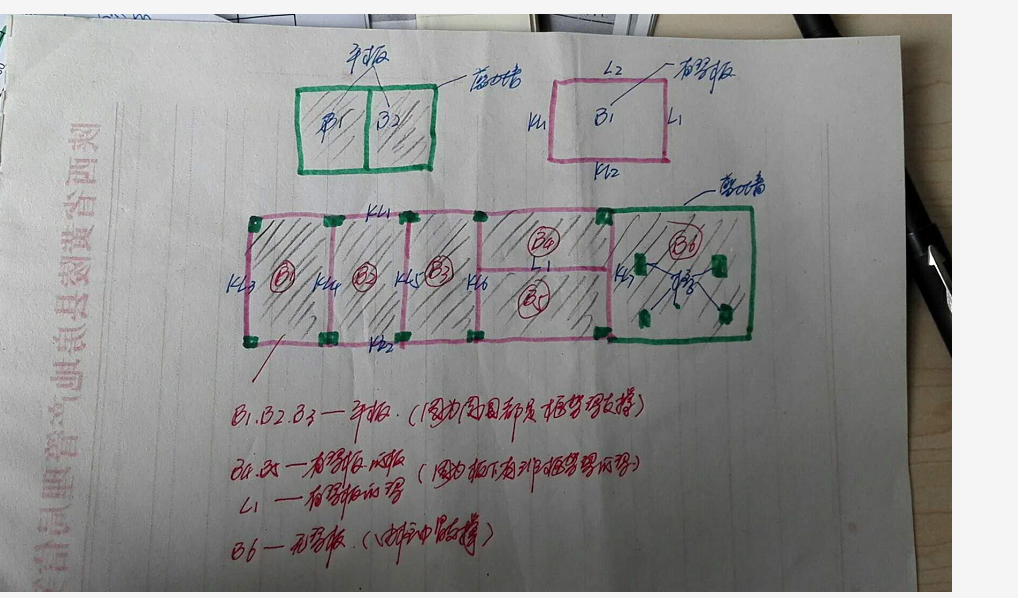 平板
剪力墙
B1 B2
L2
有梁板
KL1 B1 L1
KL2
剪力墙
KL1
B4
B6
L1
KL3 B1 KL4 B2 KL5 B3 KL6 B5 KL7 柱
KL2
B1.B2.B3—平板.(因为周围都是框架梁支撑)
B4.B5—有梁板的板(因为板下有非框架梁的梁)
L1—有梁板的梁
B6—无梁板.(由柱中间支撑)